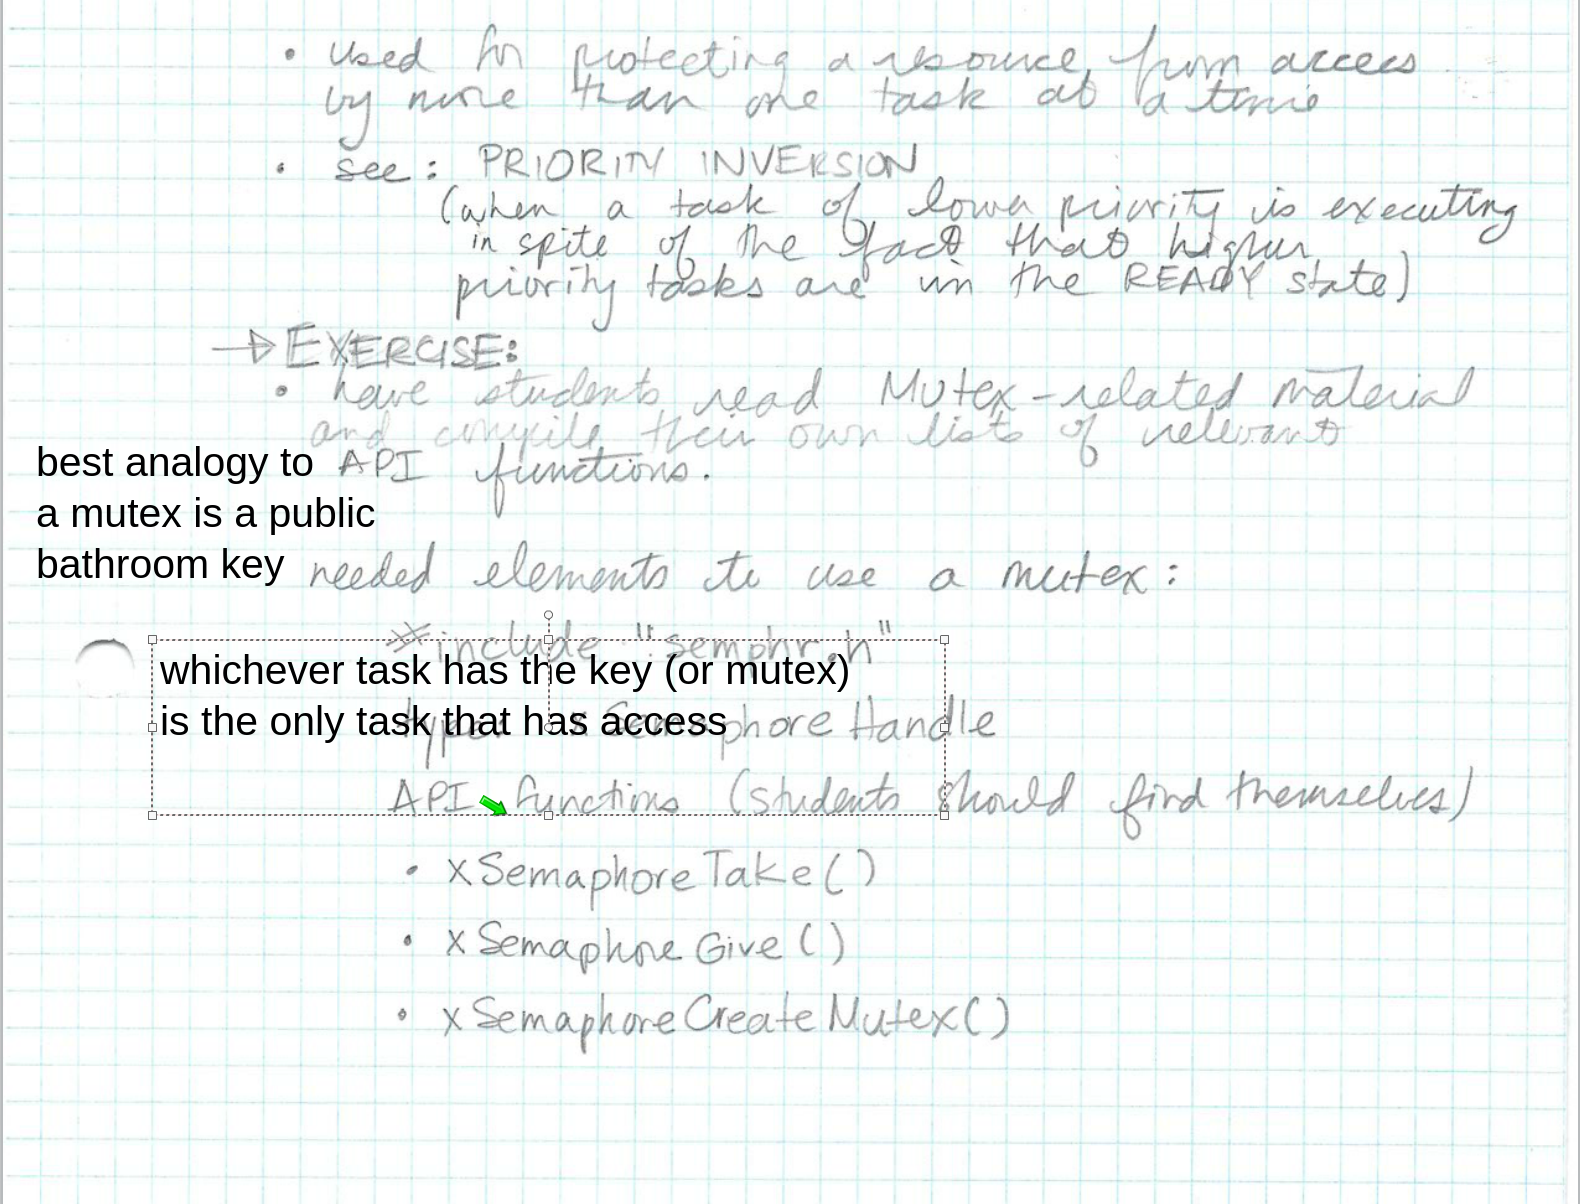 • used for protecting a resource from access
by more than one task at a time
• see: PRIORITY INVERSION
(when a task of lower priority is executing
in spite of the fact that higher
priority tasks are in the READY state)
→ EXERCISE:
• have students read Mutex-related material
and compile their own lists of relevant
API functions.
best analogy to
a mutex is a public
bathroom key
needed elements to use a mutex:
#include "semphr.h"
whichever task has the key (or mutex)
is the only task that has access
type: xSemaphoreHandle
API functions (students should find themselves)
• xSemaphoreTake()
• xSemaphoreGive()
• xSemaphoreCreateMutex()